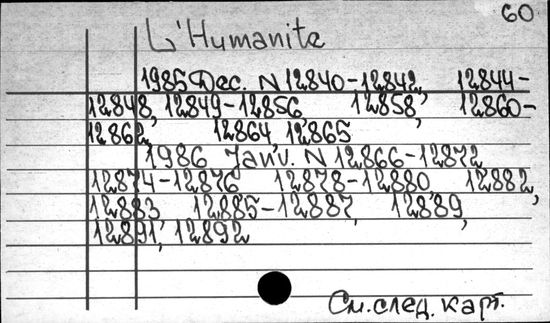 60
L'Humanite
1985 Dec. N 12840-12842, 12844-
12848, 12849-12856 12858, 12860-
12862, 12864, 12865
1986 Janv. N 12866-12872
12874-12876 12878-12880, 12882,
12883 12885-12887, 12889,
12891, 12892
См. след. карт.